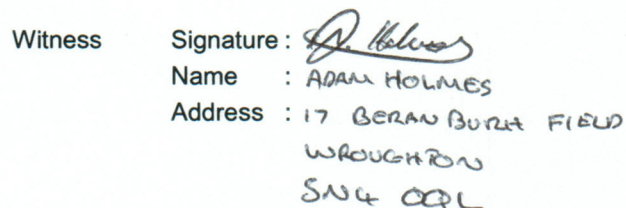 Witness Signature : A. Holmes
Name : ADAM HOLMES
Address : 17 BERAN BURH FIELD
WROUGHTON
SN4 0QL